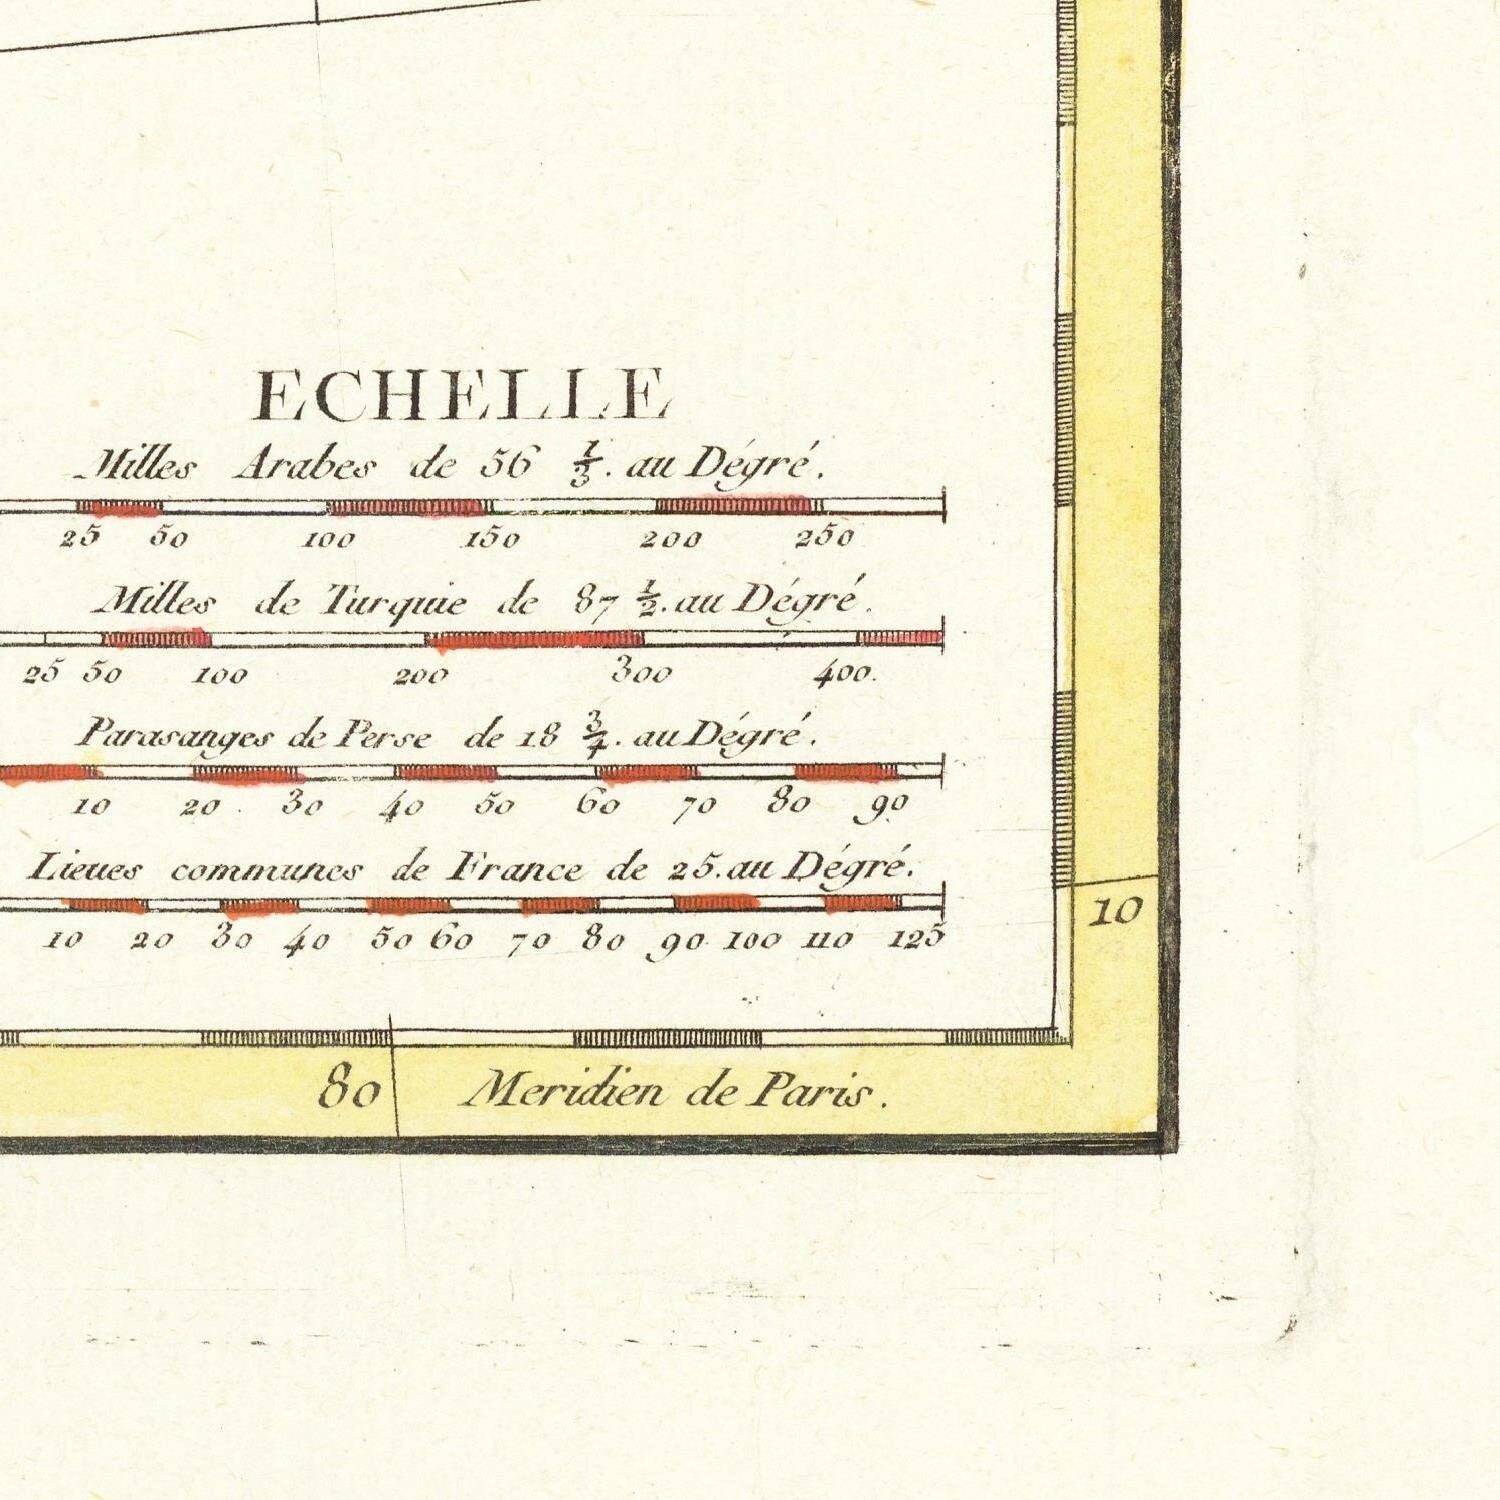 ECHELLE
Milles Arabes de 56 1/3. au Dégré.
25 50 100 150 200 250
Milles de Turquie de 87 1/2. au Dégré.
25 50 100 200 300 400.
Parasanges de Perse de 18 3/4. au Dégré.
10 20 30 40 50 60 70 80 90
Lieues communes de France de 25. au Dégré.
10 20 30 40 50 60 70 80 90 100 110 125
10
80 Meridien de Paris.